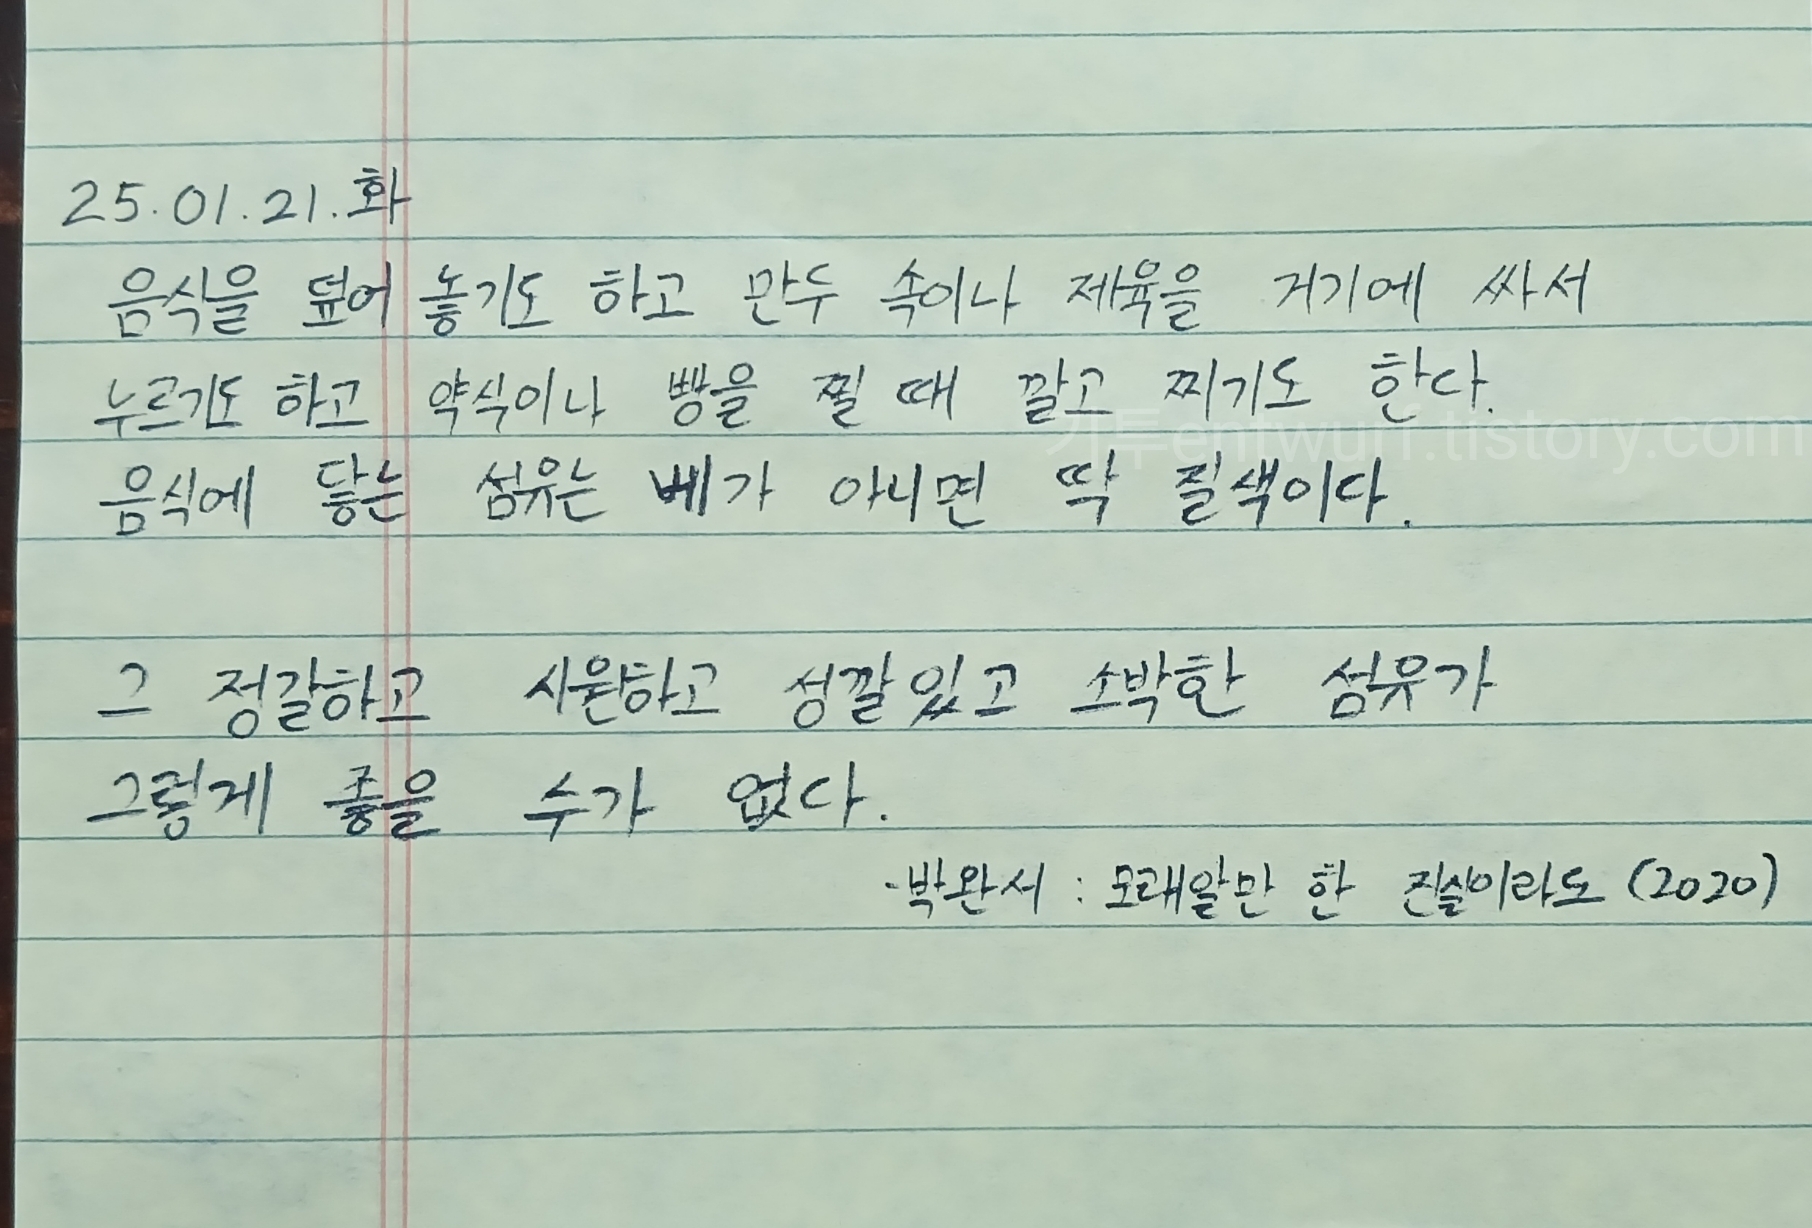 25.01.21.화
음식을 덮어 놓기도 하고 만두 속이나 제육을 거기에 싸서
누르기도 하고 약식이나 빵을 찔 때 깔고 찌기도 한다.
기투entwurf.tistory.com
음식에 닿는 섬유는 베가 아니면 딱 질색이다.
그 정갈하고 시원하고 성깔있고 소박한 섬유가
그렇게 좋을 수가 없다.
-박완서 : 모래알만 한 진실이라도 (2020)